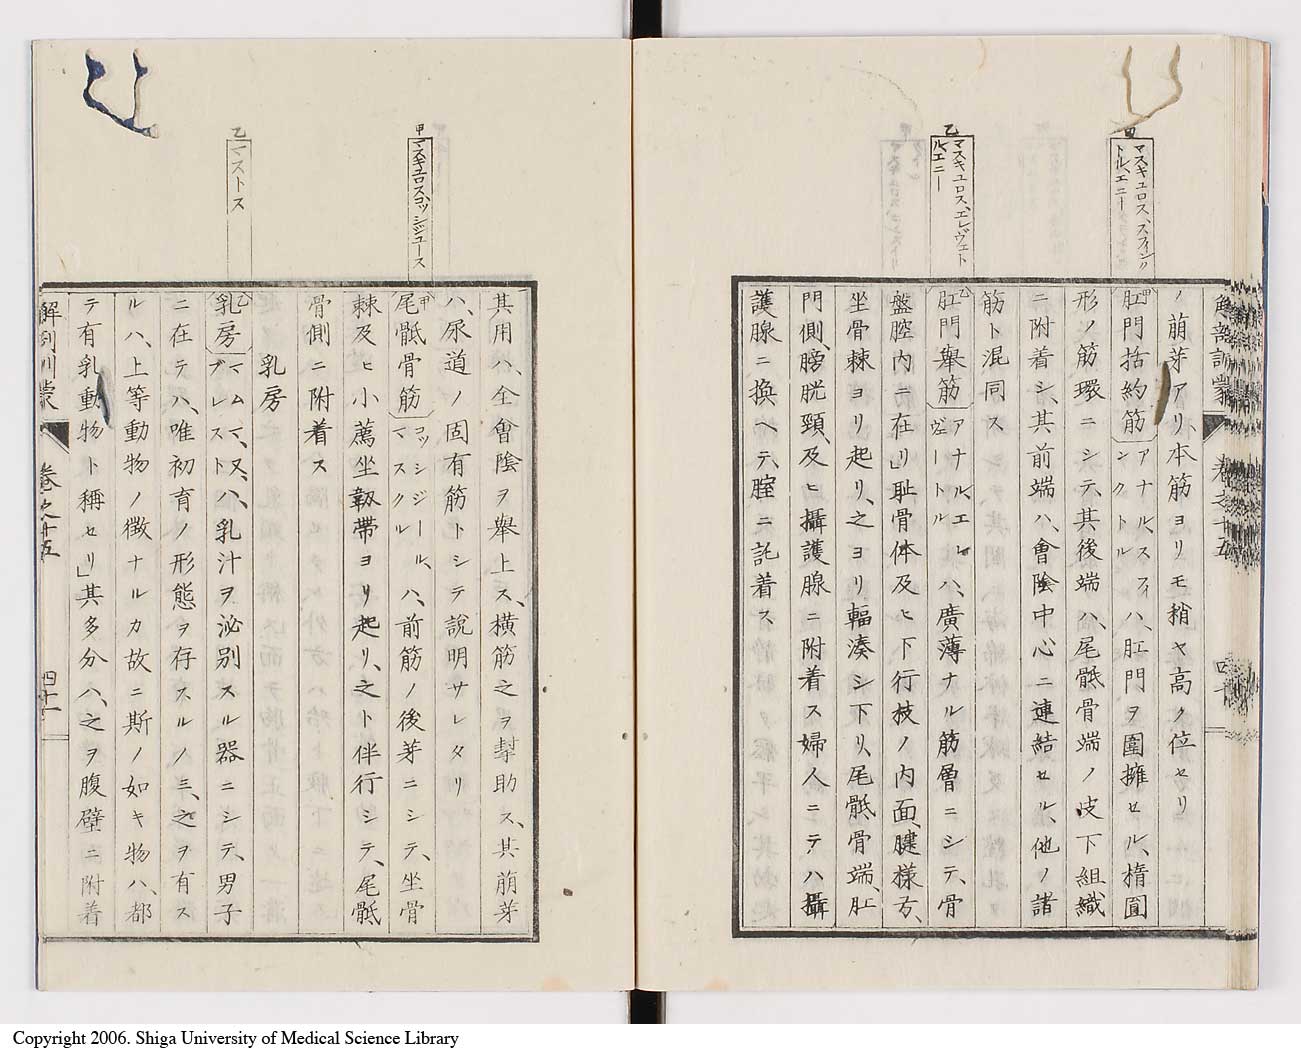 甲
マスキュロス、スフィンク
トル、エニー
乙
マスキュロス、エレヴェト
ル、エニー
解剖訓蒙 巻之十五 四十
ノ萠芽アリ、本筋ヨリモ稍ヤ高ク位セリ
甲肛門括約筋アナル、スフィンクトルハ、肛門ヲ圍擁セル、楕圓
形ノ筋環ニシテ、其後端ハ、尾骶骨端ノ皮下組織
ニ附着シ、其前端ハ、會陰中心ニ連結セル、他ノ諸
筋ト混同ス
乙肛門舉筋アナル、エレヴェートルハ、廣薄ナル筋層ニシテ、骨
盤腔内ニ在リ」耻骨体及ヒ下行枝ノ内面、腱様弓、
坐骨棘ヨリ起リ、之ヨリ輻湊シ下リ、尾骶骨端、肛
門側、膀胱頸、及ヒ攝護腺ニ附着ス婦人ニテハ攝
護腺ニ換ヘテ、腟ニ託着ス
甲
マスキュロス、コッシジュース
乙
マストス
其用ハ、全會陰ヲ舉上ス、横筋之ヲ幇助ス、其萠芽
ハ、尿道ノ固有筋トシテ説明サレタリ
甲尾骶骨筋コッシジール、マスクルハ、前筋ノ後芽ニシテ、坐骨
棘及ヒ小薦坐靱帯ヨリ起リ、之ト伴行シテ、尾骶
骨側ニ附着ス
乳房
乙乳房マムマ、又ブレストハ、乳汁ヲ泌別スル器ニシテ、男子
ニ在テハ、唯初育ノ形態ヲ存スルノミ、之ヲ有ス
ルハ、上等動物ノ徴ナルカ故ニ斯ノ如キ物ハ、都
テ有乳動物ト稱セリ」其多分ハ、之ヲ腹壁ニ附着
解剖訓蒙 巻之十五 四十一
Copyright 2006. Shiga University of Medical Science Library